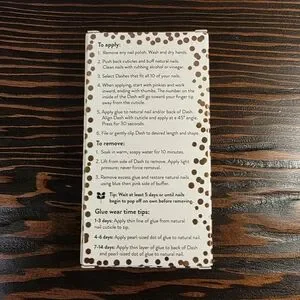 To apply:
1. Remove any nail polish. Wash and dry hands.
2. Push back cuticles and buff natural nails.
Clean nails with rubbing alcohol or vinegar.
3. Select Dashes that fit all 10 of your nails.
4. When applying, start with pinkies and work
inward, ending with thumbs. The number on the
inside of the Dash will go toward your finger tip
away from the cuticle.
5. Apply glue to natural nail and/or back of Dash.
Align Dash with cuticle and apply at a 45° angle.
Press for 30 seconds.
6. File or gently clip Dash to desired length and shape.
To remove:
1. Soak in warm, soapy water for 10 minutes.
2. Lift from side of Dash to remove. Apply light
pressure; never force removal.
3. Remove excess glue and restore natural nails
using blue then pink side of buffer.
Tip: Wait at least 5 days or until nails
begin to pop off on own before removing.
Glue wear time tips:
1-3 days: Apply thin line of glue from natural
nail cuticle to tip.
4-6 days: Apply pearl-sized dot of glue to natural nail.
7-14 days: Apply thin layer of glue to back of Dash
and pearl-sized dot of glue to natural nail.